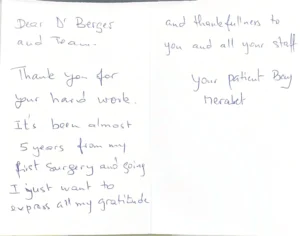 Dear Dr Berger
and Team.
Thank you for
your hard work.
It's been almost
5 years from my
first surgery and going
I just want to
express all my gratitude
and thankfullness to
you and all your staff
your patient Bay
Merabet